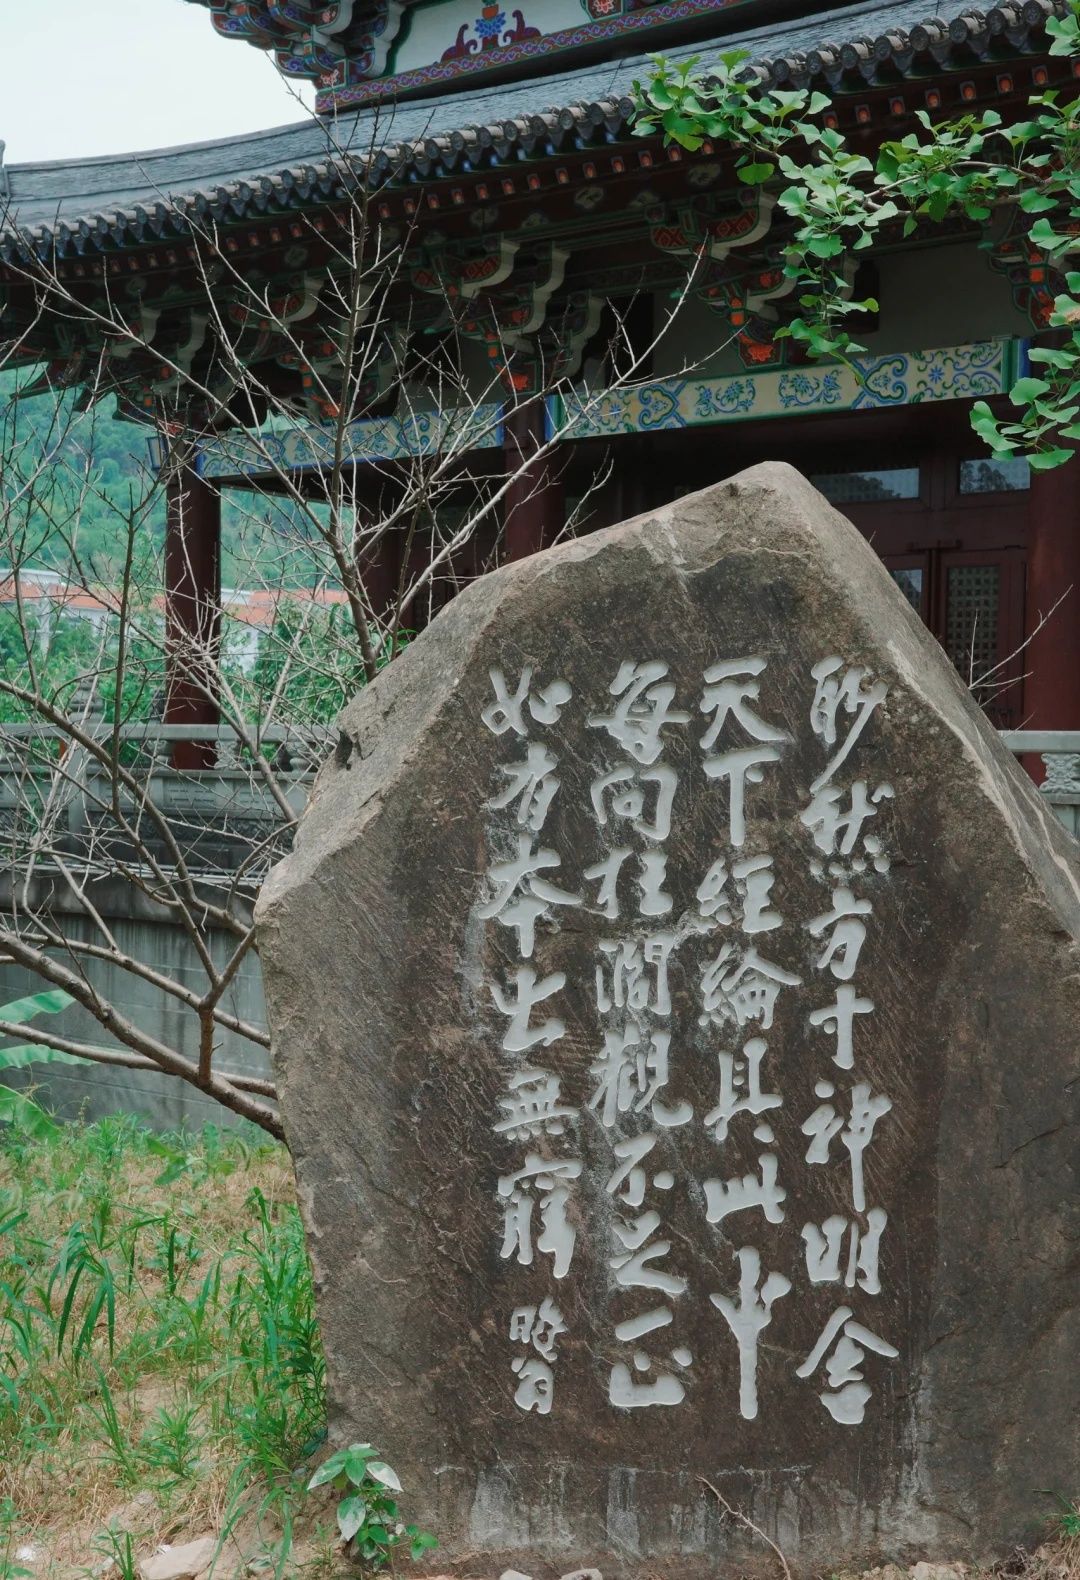 眇然方寸神明舍
天下經綸具此中
每向狂瀾觀不足正
如有本出無窮 晦翁